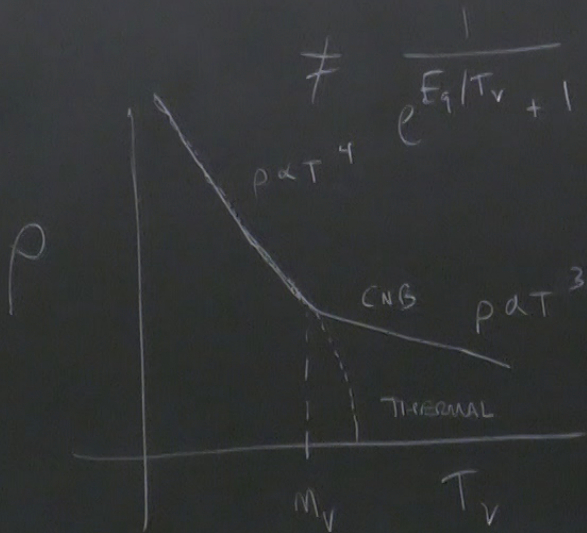 ≠ 1 / (e^{E_q/T_ν} + 1)
ρ ∝ T^4
ρ
CNB
ρ ∝ T^3
THERMAL
M_ν
T_ν